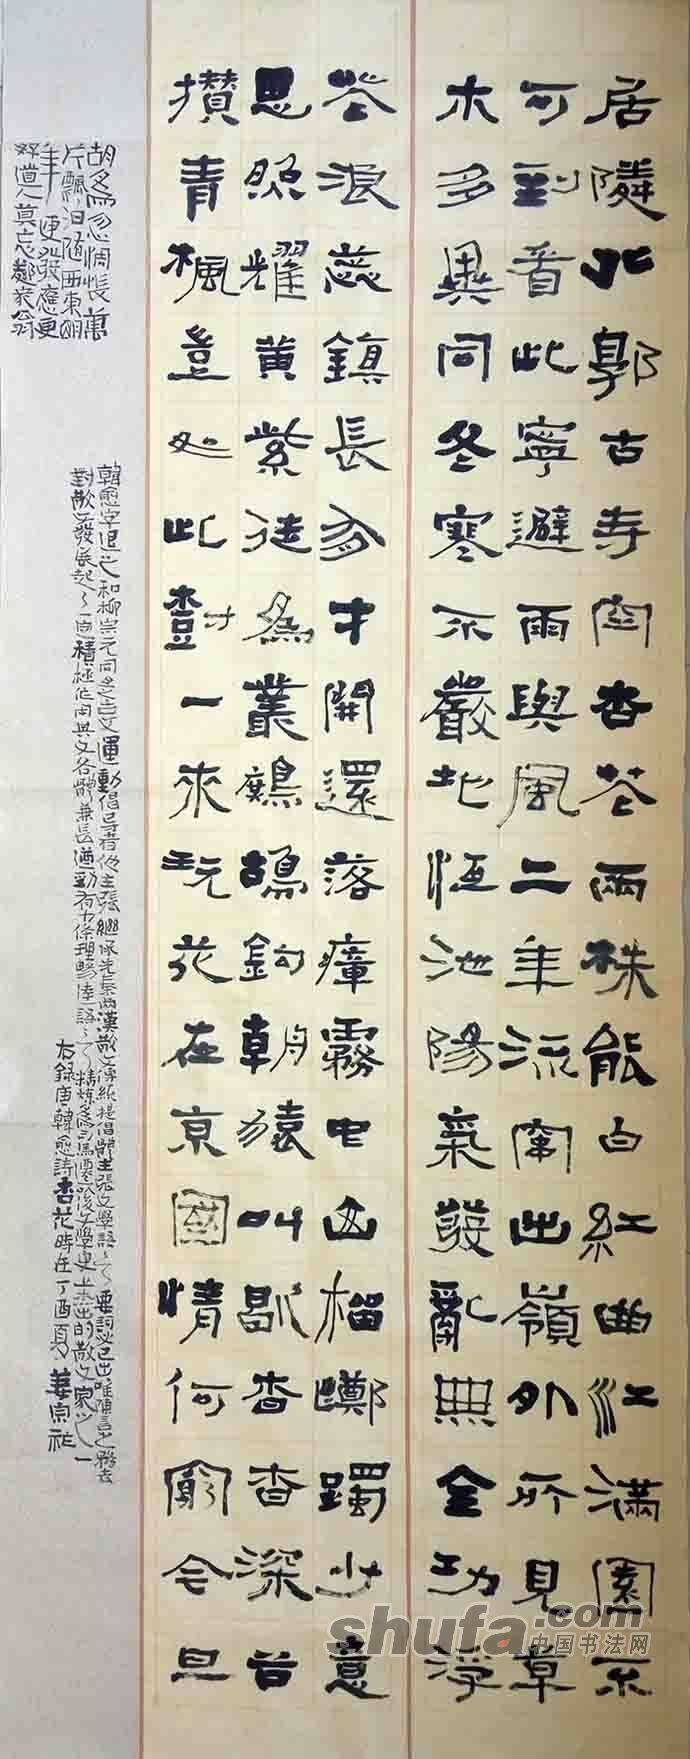 居隣北郭古寺空杏花兩株能白紅曲江滿園不
可到看此寧避雨與風二年流竄出嶺外所見草
木多異同冬寒不嚴地恆泄陽氣發亂無全功浮
花浪蕊鎮長有才開還落瘴霧中山榴躑躅少意
思照耀黃紫徒為叢鷓鴣鈎輈猿叫歇杳杳深谷
攢青楓豈処此樹一來玩花在京國情何窮今旦
胡為忽惆悵萬
片飄泊隨西東明
年更發應更
好道人莫忘鄰家翁
韓愈字退之和柳宗元同是古文運動倡导者他主張繼承先秦兩漢散文傳統提倡主張文學語言要詞必己出唯陳言之務去
對散文發展起了一定積極作用其文各體兼長遒勁有力條理暢達語言精煉為司馬遷以後文學史上杰出的散文家之一
右錄唐韓愈詩杏花時在丁酉夏姜宗社
shufa.com
中国书法网